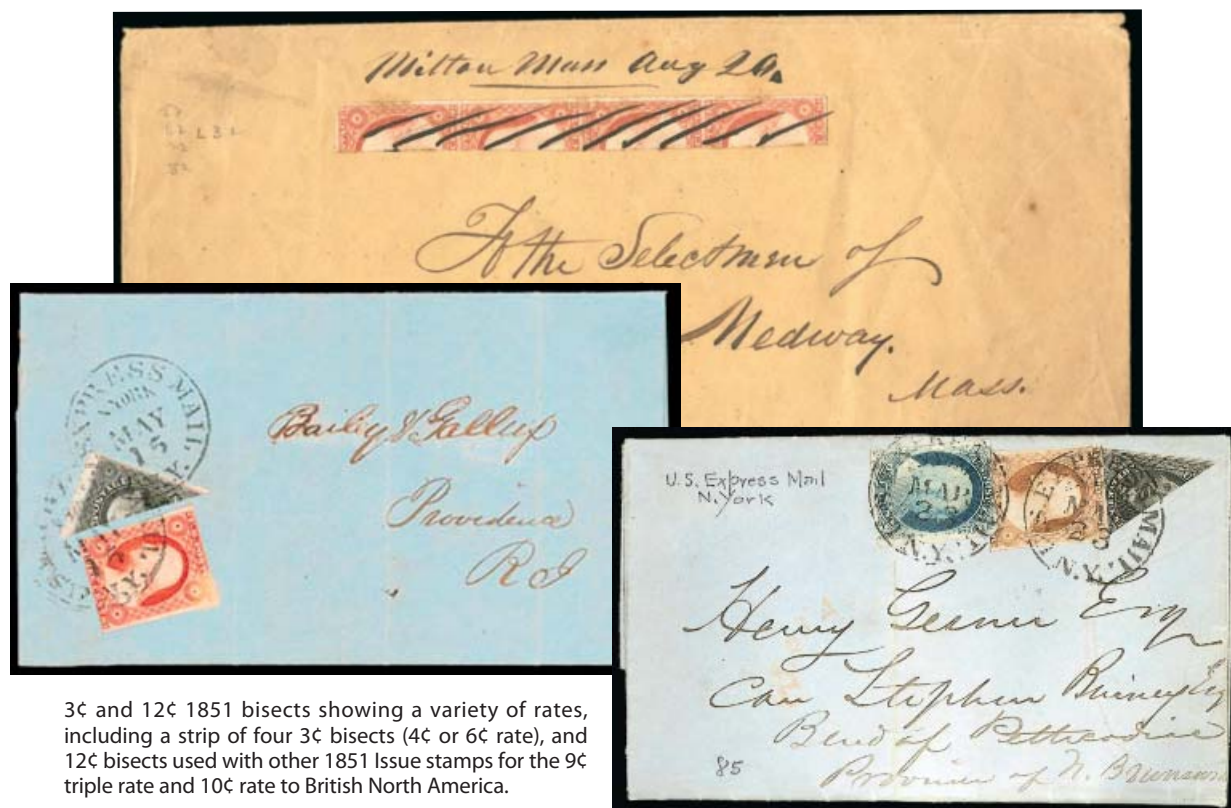 Milton Mass Aug 20
L 3 1
To the Selectmen of
Medway.
Mass.
EXPRESS MAIL
N.YORK
MAY
15
N.Y.
Bailey & Gallup
Providence
R I
U.S. Express Mail
N. York
MAR
23
MAIL N.Y.
Henry Gesner Esq
Care Stephen Binney Esq
Bend of Petticodiac
Province of N. Brunswick
85
3¢ and 12¢ 1851 bisects showing a variety of rates,
including a strip of four 3¢ bisects (4¢ or 6¢ rate), and
12¢ bisects used with other 1851 Issue stamps for the 9¢
triple rate and 10¢ rate to British North America.